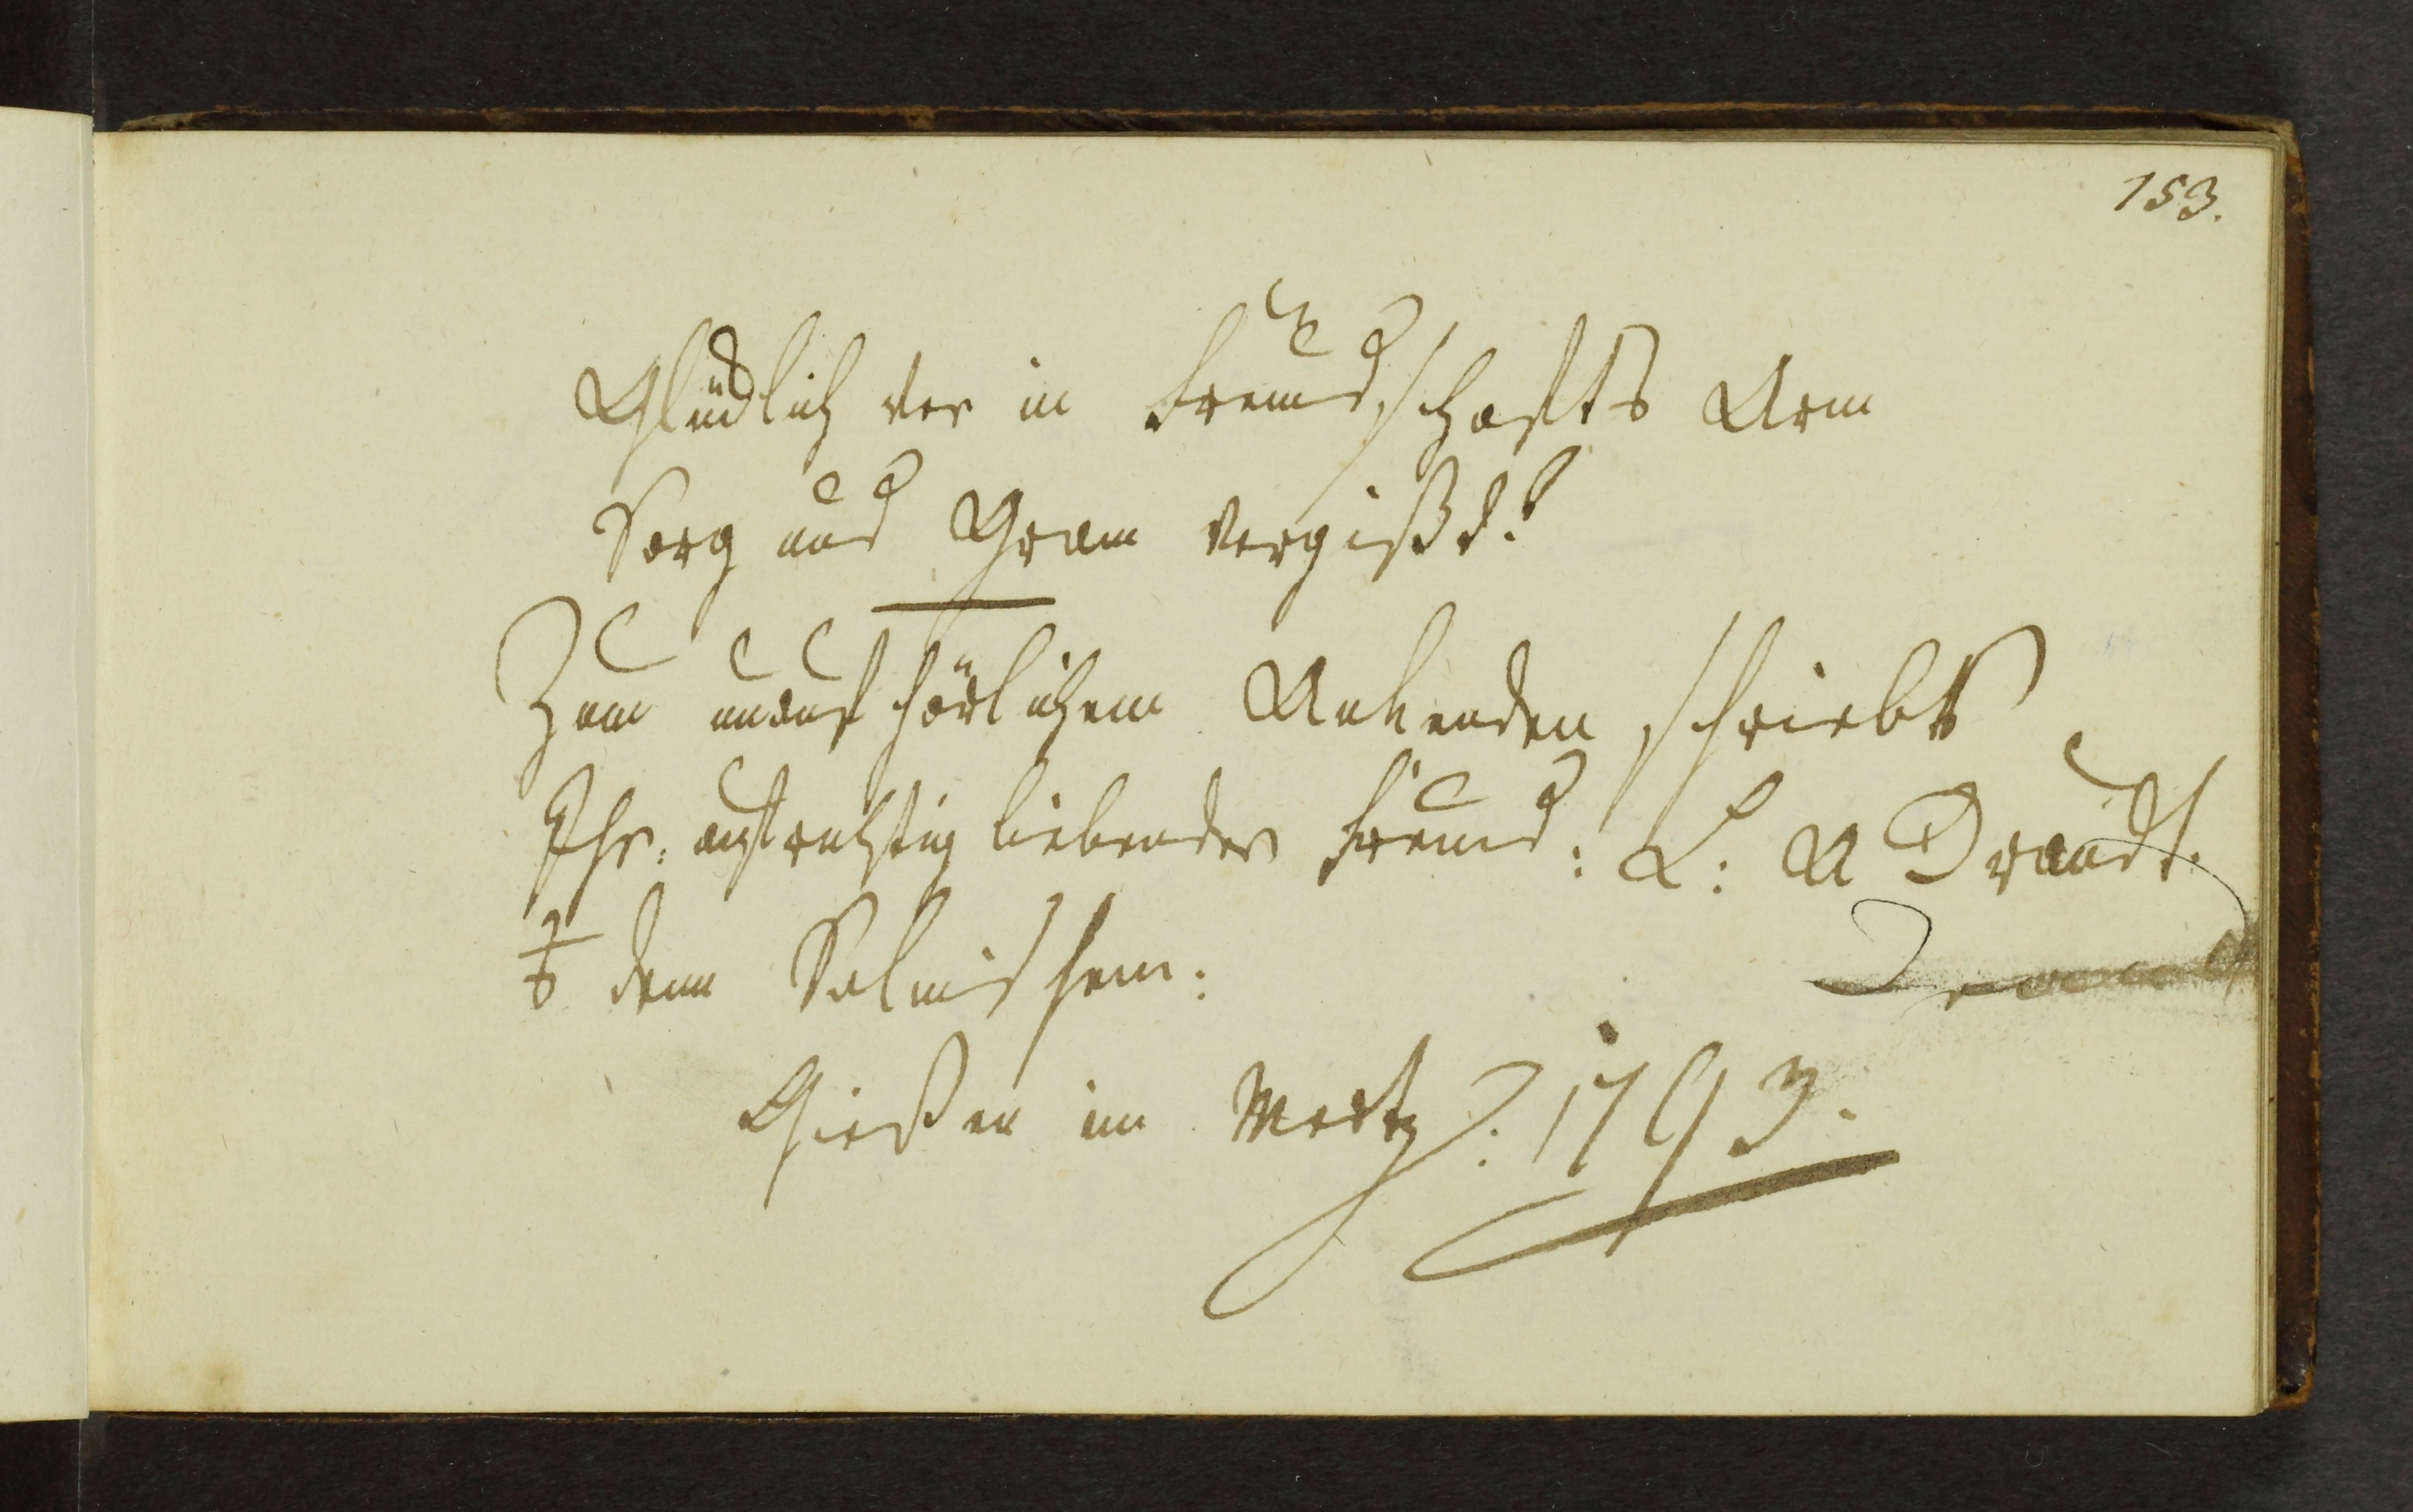 153.
Glücklich der in Freundschafts Arm
Sorg und Gram vergißd!
Zum unaufhörlichem Ankenden schriebs
Ihr: aufruchtig liebender Freund: L: A Draudt.
dem Solmischem:
Giesen im Mertz. 1793.